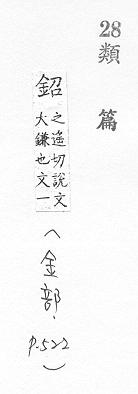 28
類篇
鉊
之遙切說文
大鎌也文一
(金部,
p.522)